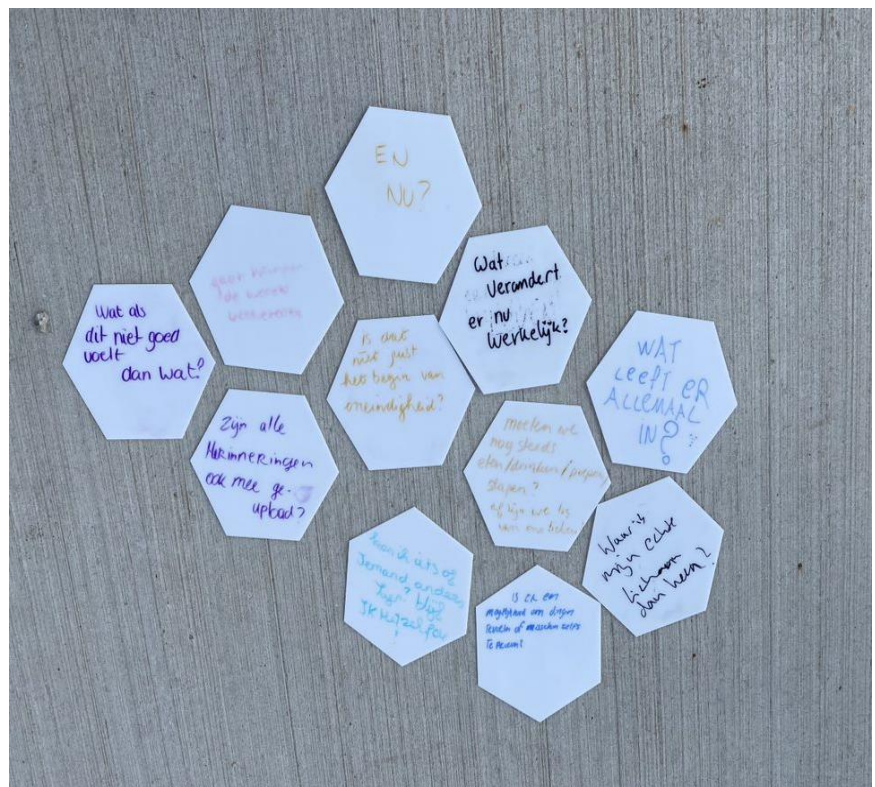 EN
NU?
de wereld
Wat
Verandert
er nu
werkelijk?
Wat als
dit niet goed
voelt
dan wat?
is dat
niet juist
het begin van
oneindigheid?
WAT
LEEFT ER
ALLEMAAL
IN?
Zijn alle
Herinneringen
ook mee ge-
upload?
moeten we
nog steeds
eten/drinken/poepen/
slapen?
of zijn we los
van
Waar is
mijn echte
lichaam
dan heen?
Kan ik iets of
Iemand anders
zijn? blijf
IK Hetzelfde
!
is er een
mogelijkheid om dingen
of misschien zelfs
te